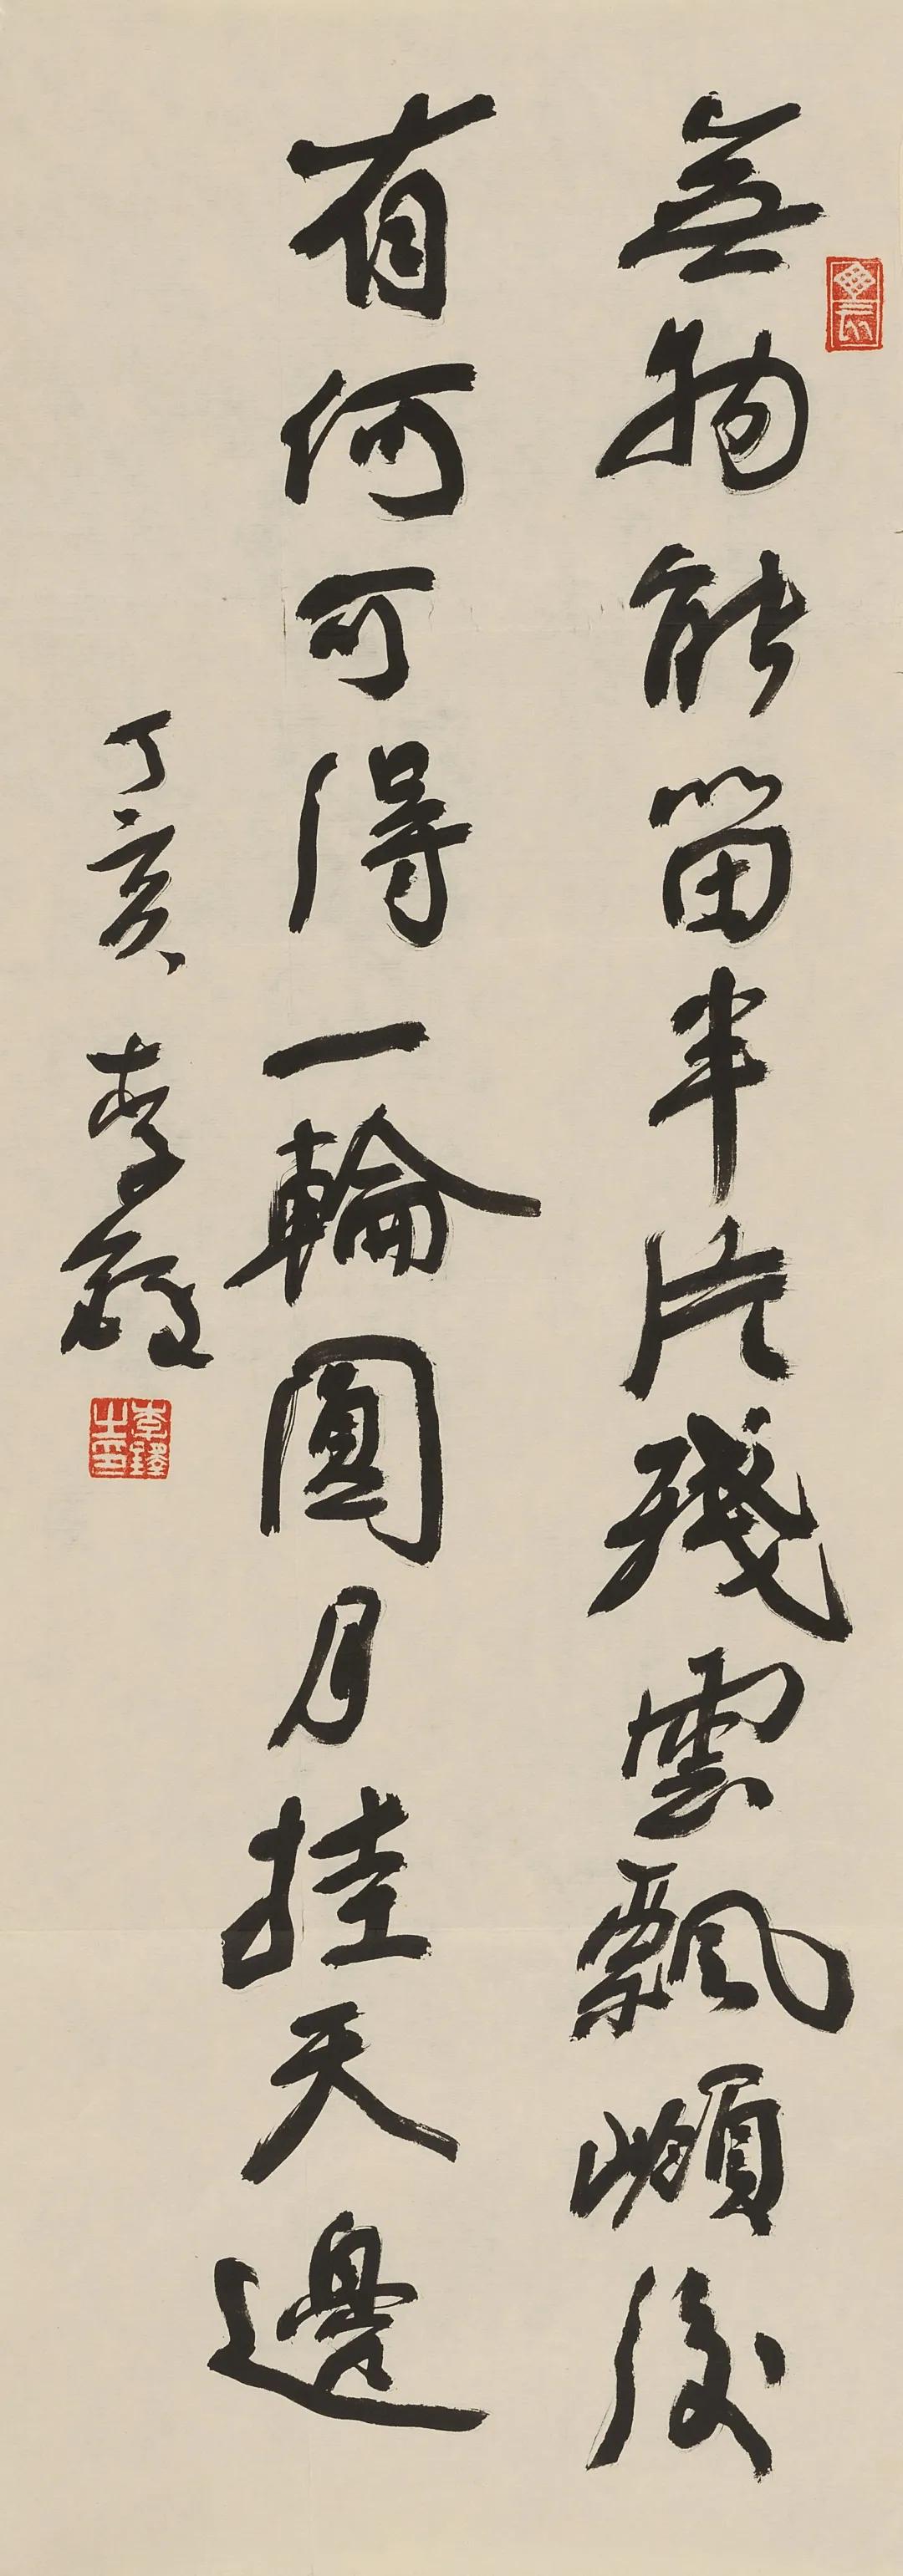 無物能留半片殘雲飄嶺後
有何可得一輪圓月挂天邊
丁亥 李鐸
李鐸之印